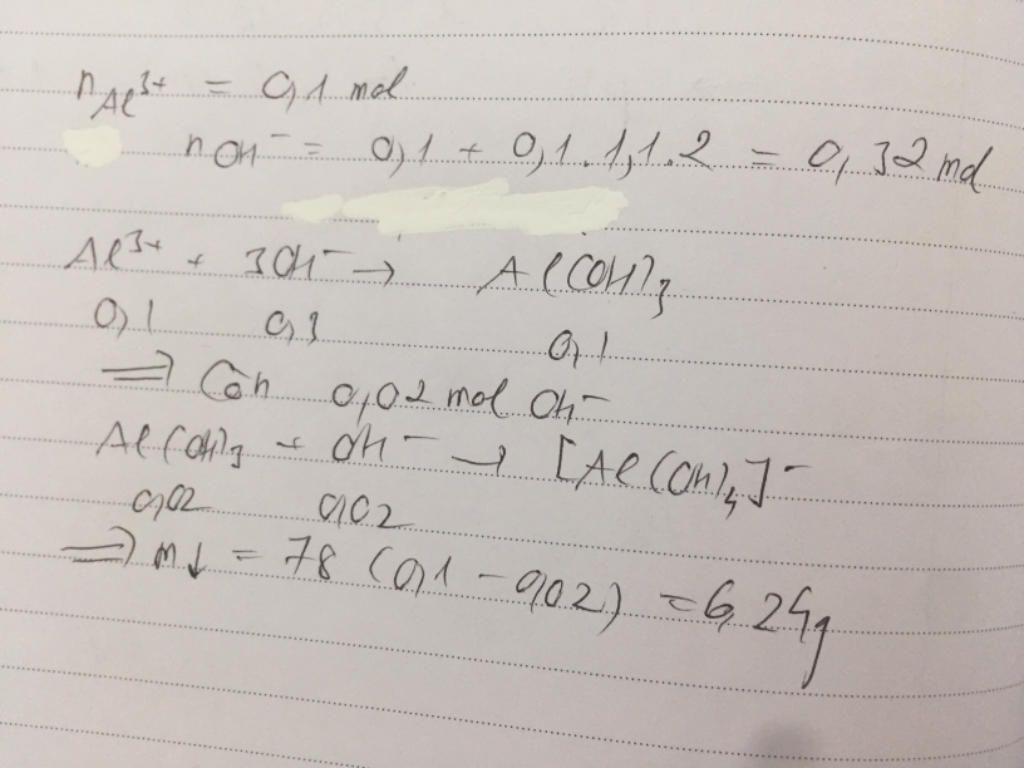 n Al³⁺ = 0,1 mol
n OH⁻ = 0,1 + 0,1.1,1.2 = 0,32 mol
Al³⁺ + 3OH⁻ → Al(OH)₃
0,1 0,3 0,1
⇒ Còn 0,02 mol OH⁻
Al(OH)₃ + OH⁻ → [Al(OH)₄]⁻
0,02 0,02
⇒ m↓ = 78 (0,1 - 0,02) = 6,24g